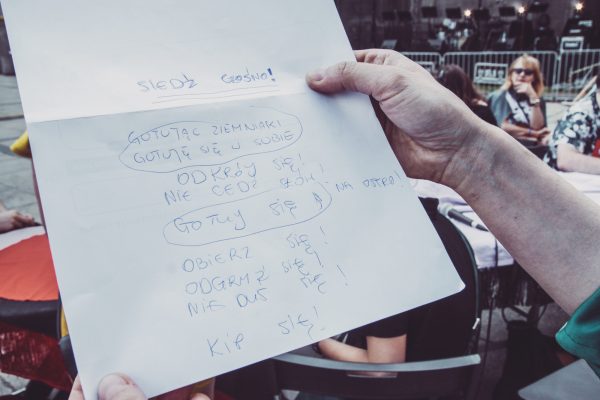 SIEDŹ GŁOŚNO!
GOTUJĄC ZIEMNIAKI
GOTUJĘ SIĘ W SOBIE
ODKRÓJ SIĘ!
NIE CEDŹ SŁÓW!
GOTUJ SIĘ NA OSTRO!
OBIERZ SIĘ!
ODGRYŹ SIĘ!
NIE DUŚ SIĘ!
KIP SIĘ!